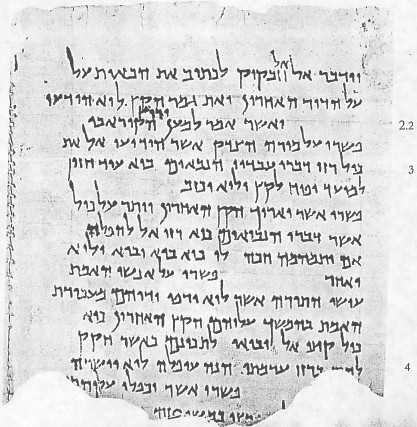 וידבר אל אל חבקוק לכתוב את הבאות על
על הדור האחרון ואת גמר הקץ לוא הודעו
ואשר אמר למען ירוץ הקורא בו 2.2
פשרו על מורה הצדק אשר הודיעו אל את
כול רזי דברי עבדיו הנבאים כיא עוד חזון 3
למועד יפיח לקץ ולוא יכזב
פשרו אשר יארוך הקץ האחרון ויתר על כול
אשר דברו הנביאים כיא רזי אל להפלה
אם יתמהמה חכה לו כיא בוא יבוא ולוא
יאחר פשרו על אנשי האמת
עושי התורה אשר לוא ירפו ידיהם מעבודת
האמת בהמשך עליהם הקץ האחרון כיא
כול קיצי אל יבואו לתכונם כאשר חקק
להם ברזי ערמתו הנה עופלה לוא יושרה 4
פשרו אשר יכפלו עליהם
ירצו